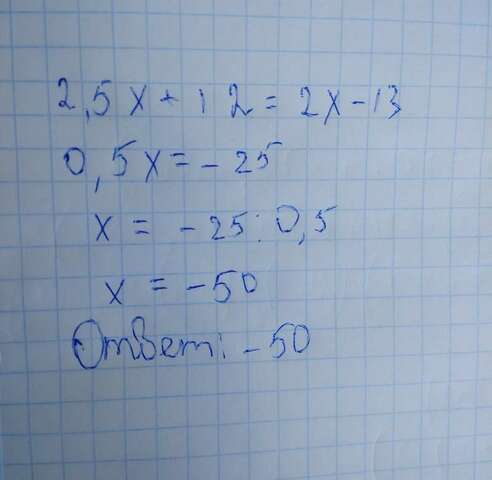 2,5x + 12 = 2x - 13
0,5x = - 25
x = - 25 : 0,5
x = - 50
Ответ: - 50